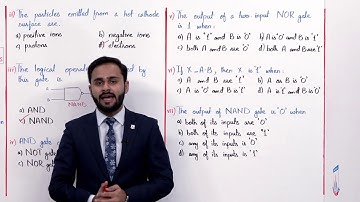 ii) The particles emitted from a hot cathode
surface are.
a) positive ions b) negative ions
c) protons d) electrons
iii) The logical operation by
this gate is
a) AND
c) NAND
NAND
iv) AND gate
a) NOT gate
c) NOR gate
v) The output of a two input NOR gate
is 1 when:
a) A is '1' and B is '0' b) A is '0' and B is '1'
c) both A and B are '0' d) both A and B are
vi) If X=A·B, then X is '1' when:
a) A and B are b) A or B is '0'
c) A is '1' and B is '0' d) A is '0' and B is '1'
vii) The output of NAND gate is '0' when
a) both of its inputs are '0'
b) both of its inputs are '1'
c) any of its inputs is '0'
d) any of its inputs is '1'